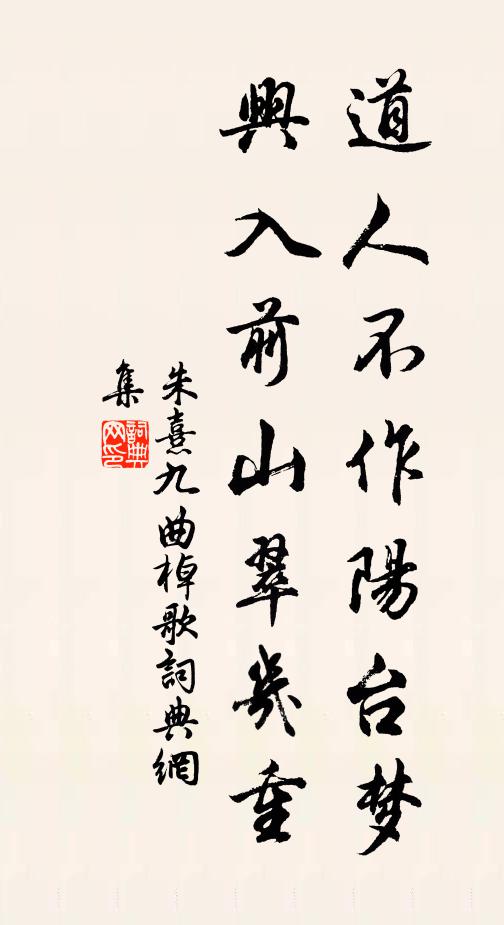 道人不作陽台梦
興入前山翠幾重
朱熹九曲棹歌詞典網
集
詞典
网印